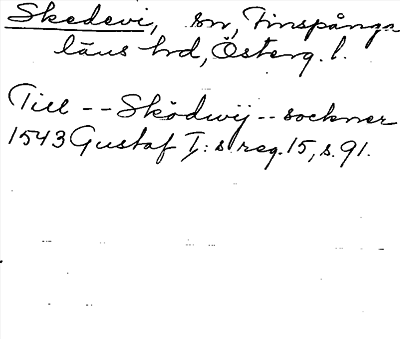 Skedevi, sn, Finspånga
läns hd, Österg. l.
Till -- Sködwij -- sockner
1543 Gustaf I:s reg. 15, s. 91.